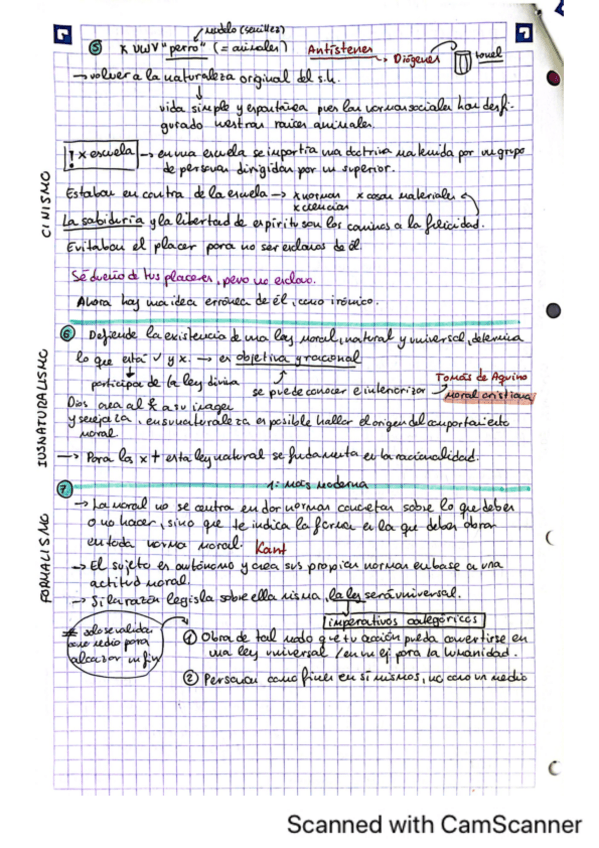 modelo (sencillez)
⑤ x VIVIV "perro" (= animales) Antístenes → Diógenes tonel
→ volver a la naturaleza original del s.h.
vida simple y espontánea pues las normas sociales han desfi-
gurado nuestras raíces animales.
! x escuela → en una escuela se impartía una doctrina mantenida por un grupo
de personas dirigidas por un superior.
CINISMO
Estaban en contra de la escuela → x normas x cosas materiales
x ciencias
La sabiduría y la libertad de espíritu son los caminos a la felicidad.
Evitaban el placer para no ser esclavos de él.
Sé dueño de tus placeres, pero no esclavo.
Ahora hay una idea errónea de él, como irónico.
IUSNATURALISMO
⑥ Defiende la existencia de una ley moral, natural y universal, determina
lo que está ✓ y x. → es objetiva y racional
participa de la ley divina se puede conocer e interiorizar → Tomás de Aquino
moral cristiana
Dios crea al h a su imagen
y semejanza, en su naturaleza es posible hallar el origen del comportamiento
moral
→ Para los x + esta ley natural se fundamenta en la racionalidad.
⑦ 1ª: más moderna
FORMALISMO
→ La moral no se centra en dar normas concretas sobre lo que debes
o no hacer, sino que te indica la forma en la que debes obrar
en toda norma moral. Kant
→ El sujeto es autónomo y crea sus propias normas en base a una
actitud moral.
→ Si la razón legisla sobre ella misma, la ley será universal.
imperativos categóricos
≠ solo se validan
como medio para
alcanzar un fin
① Obra de tal modo que tu acción pueda convertirse en
una ley universal / en un ej para la humanidad.
② Personas como fines en sí mismos, no como un medio
Scanned with CamScanner